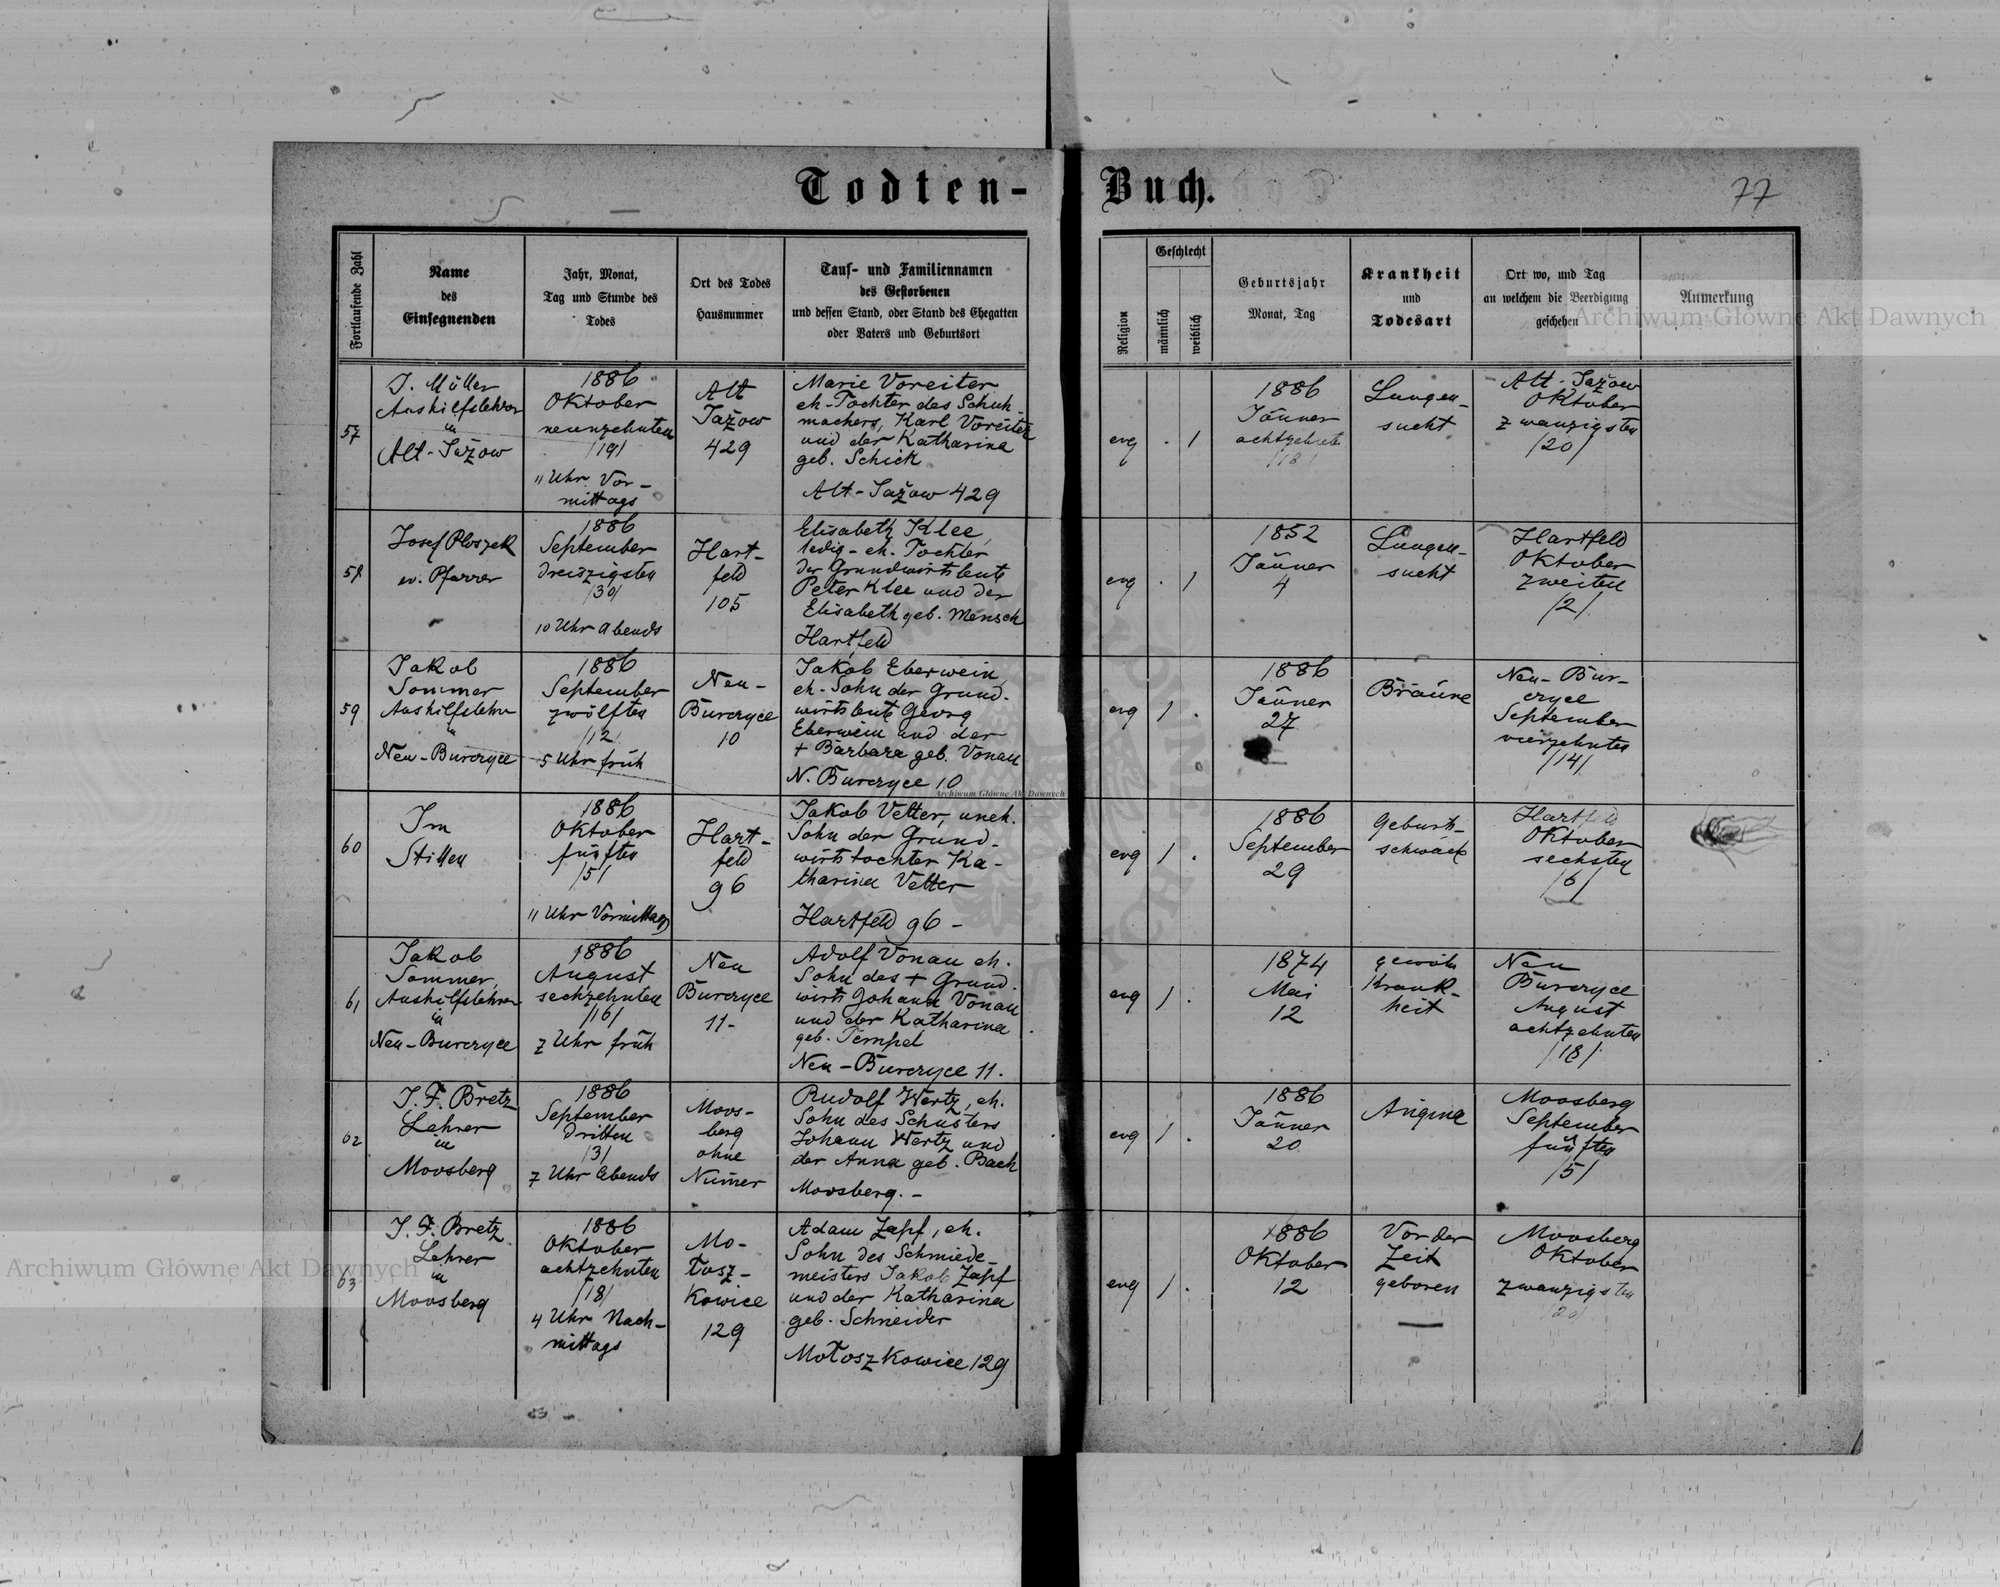 Todten-Buch.
77
Fortlaufende Zahl
Name
des
Einsegnenden
Jahr, Monat,
Tag und Stunde des
Todes
Ort des Todes
Hausnummer
Tauf- und Familiennamen
des Gestorbenen
und dessen Stand, oder Stand des Ehegatten
oder Vaters und Geburtsort
Religion
Geschlecht
männlich
weiblich
Geburtsjahr
Monat, Tag
Krankheit
und
Todesart
Ort wo, und Tag
an welchem die Beerdigung
geschehen
Anmerkung
57
J. Müller
Aushilfslehrer
in
Alt-Jažow
1886
Oktober
neunzehnten
/19/
11 Uhr Vor-
mittags
Alt
Jažow
429
Marie Voreiter
eh-Tochter des Schuh-
machers, Karl Voreiter
und der Katharina
geb. Schick
Alt-Jažow 429
evg
.
1
1886
Jänner
achtzehnte
/18/
Lungen-
sucht
Alt-Jažow
Oktober
zwanzigsten
/20/
58
Josef Ploszek
ev. Pfarrer
1886
September
dreiszigsten
/30/
10 Uhr abends
Hart-
feld
105
Elisabeth Klee,
ledig-eh. Tochter
der Grundwirtsleute
Peter Klee und der
Elisabeth geb. Mensch
Hartfeld
evg
.
1
1852
Jänner
4
Lungen-
sucht
Hartfeld
Oktober
zweiten
/2/
59
Jakob
Sommer
Aushilfslehrer
in
Neu-Burczyce
1886
September
zwölften
/12/
5 Uhr früh
Neu-
Burczyce
10
Jakob Eberwein,
eh-Sohn der Grund-
wirtsleute Georg
Eberwein und der
+ Barbara geb. Vonau
N. Burczyce 10
evg
1
.
1886
Jänner
27
Bräune
Neu-Bur-
czyce
September
vierzehnten
/14/
60
Im
Stillen
1886
Oktober
fünften
/5/
11 Uhr Vormittag
Hart-
feld
96
Jakob Vetter, uneh.
Sohn der Grund-
wirtstochter Ka-
tharina Vetter
Hartfeld 96 -
evg
1
.
1886
September
29
Geburts-
schwäche
Hartfeld
Oktober
sechsten
/6/
61
Jakob
Sommer,
Aushilfslehrer
in
Neu-Burczyce
1886
August
sechzehnten
/16/
7 Uhr früh
Neu
Burczyce
11-
Adolf Vonau eh.
Sohn des + Grund-
wirts Johann Vonau
und der Katharina
geb. Tempel
Neu-Burczyce 11.
evg
1
.
1874
Mai
12
gewöhn
Krank-
heit
Neu
Burczyce
August
achtzehnten
/18/
62
J. F. Bretz
Lehrer
in
Moosberg
1886
September
dritten
/3/
7 Uhr abends
Moos-
berg
ohne
Numer
Rudolf Wertz, eh.
Sohn des Schusters
Johann Wertz und
der Anna geb. Bach
Moosberg. -
evg
1
.
1886
Jänner
20
Angina
Moosberg
September
fünften
/5/
63
J. F. Bretz
Lehrer
in
Moosberg
1886
Oktober
achtzehnten
/18/
4 Uhr Nach-
mittags
Mo-
łosz-
kowice
129
Adam Zapf, eh.
Sohn des Schmiede-
meisters Jakob Zapf
und der Katharina
geb. Schneider
Mołoszkowice 129
evg
1
.
1886
Oktober
12
Vor der
Zeit
geboren
Moosberg
Oktober
zwanzigsten
/20/
Archiwum Główne Akt Dawnych
Archiwum Główne Akt Dawnych
Archiwum Główne Akt Dawnych